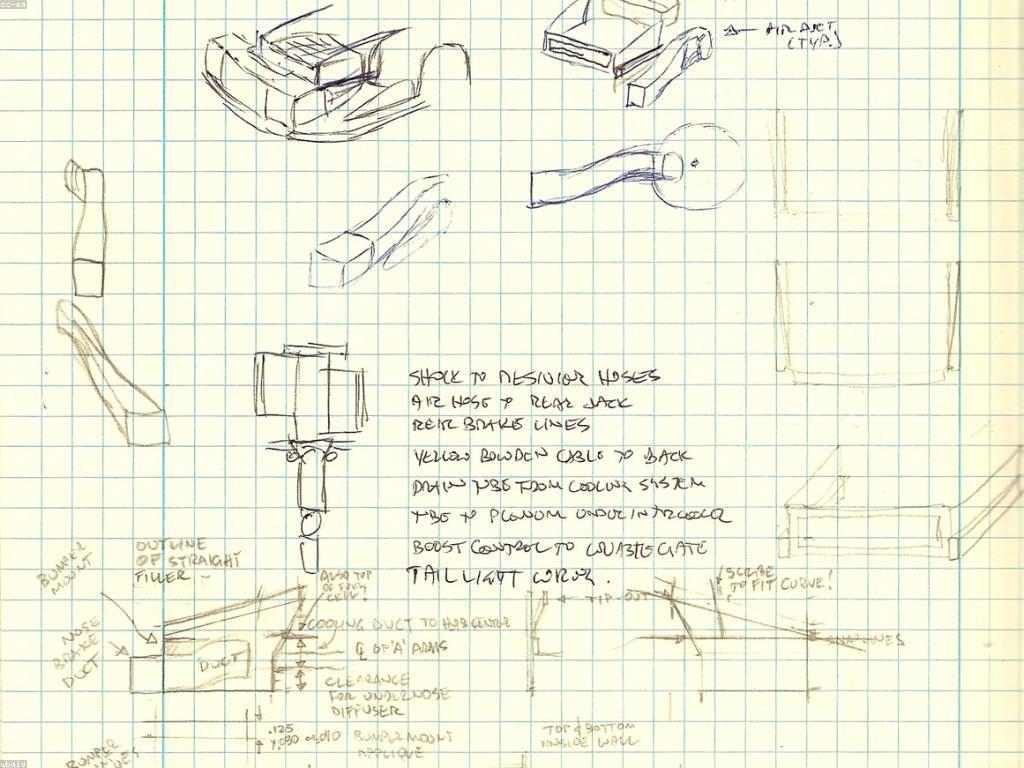 cc-sa
AIR DUCT
(TYP.)
SHOCK TO RESEVIOR HOSES
AIR HOSE TO REAR JACK
REAR BRAKE LINES
YELLOW BOWDEN CABLE TO BACK
DRAIN TUBE FROM COOLING SYSTEM
TUBE TO PLENUM UNDER INTERCOOLER
BOOST CONTROL TO WASTEGATE
TAIL LIGHT
OUTLINE
OF STRAIGHT
FILLER -
BUMPER
MOUNT
ALSO TOP
OF FUEL
CELL!
SCRIBE
TO FIT CURVE!
TIP-OUT
COOLING DUCT TO
NOSE
BRAKE
DUCT
DUCT
℄ OF 'A' ARMS
SNAP LINES
CLEARANCE
FOR UNDERNOSE
DIFFUSER
.125
BUMPER MOUNT
APPLIQUE
TOP & BOTTOM
INSIDE WALL
BUMPER